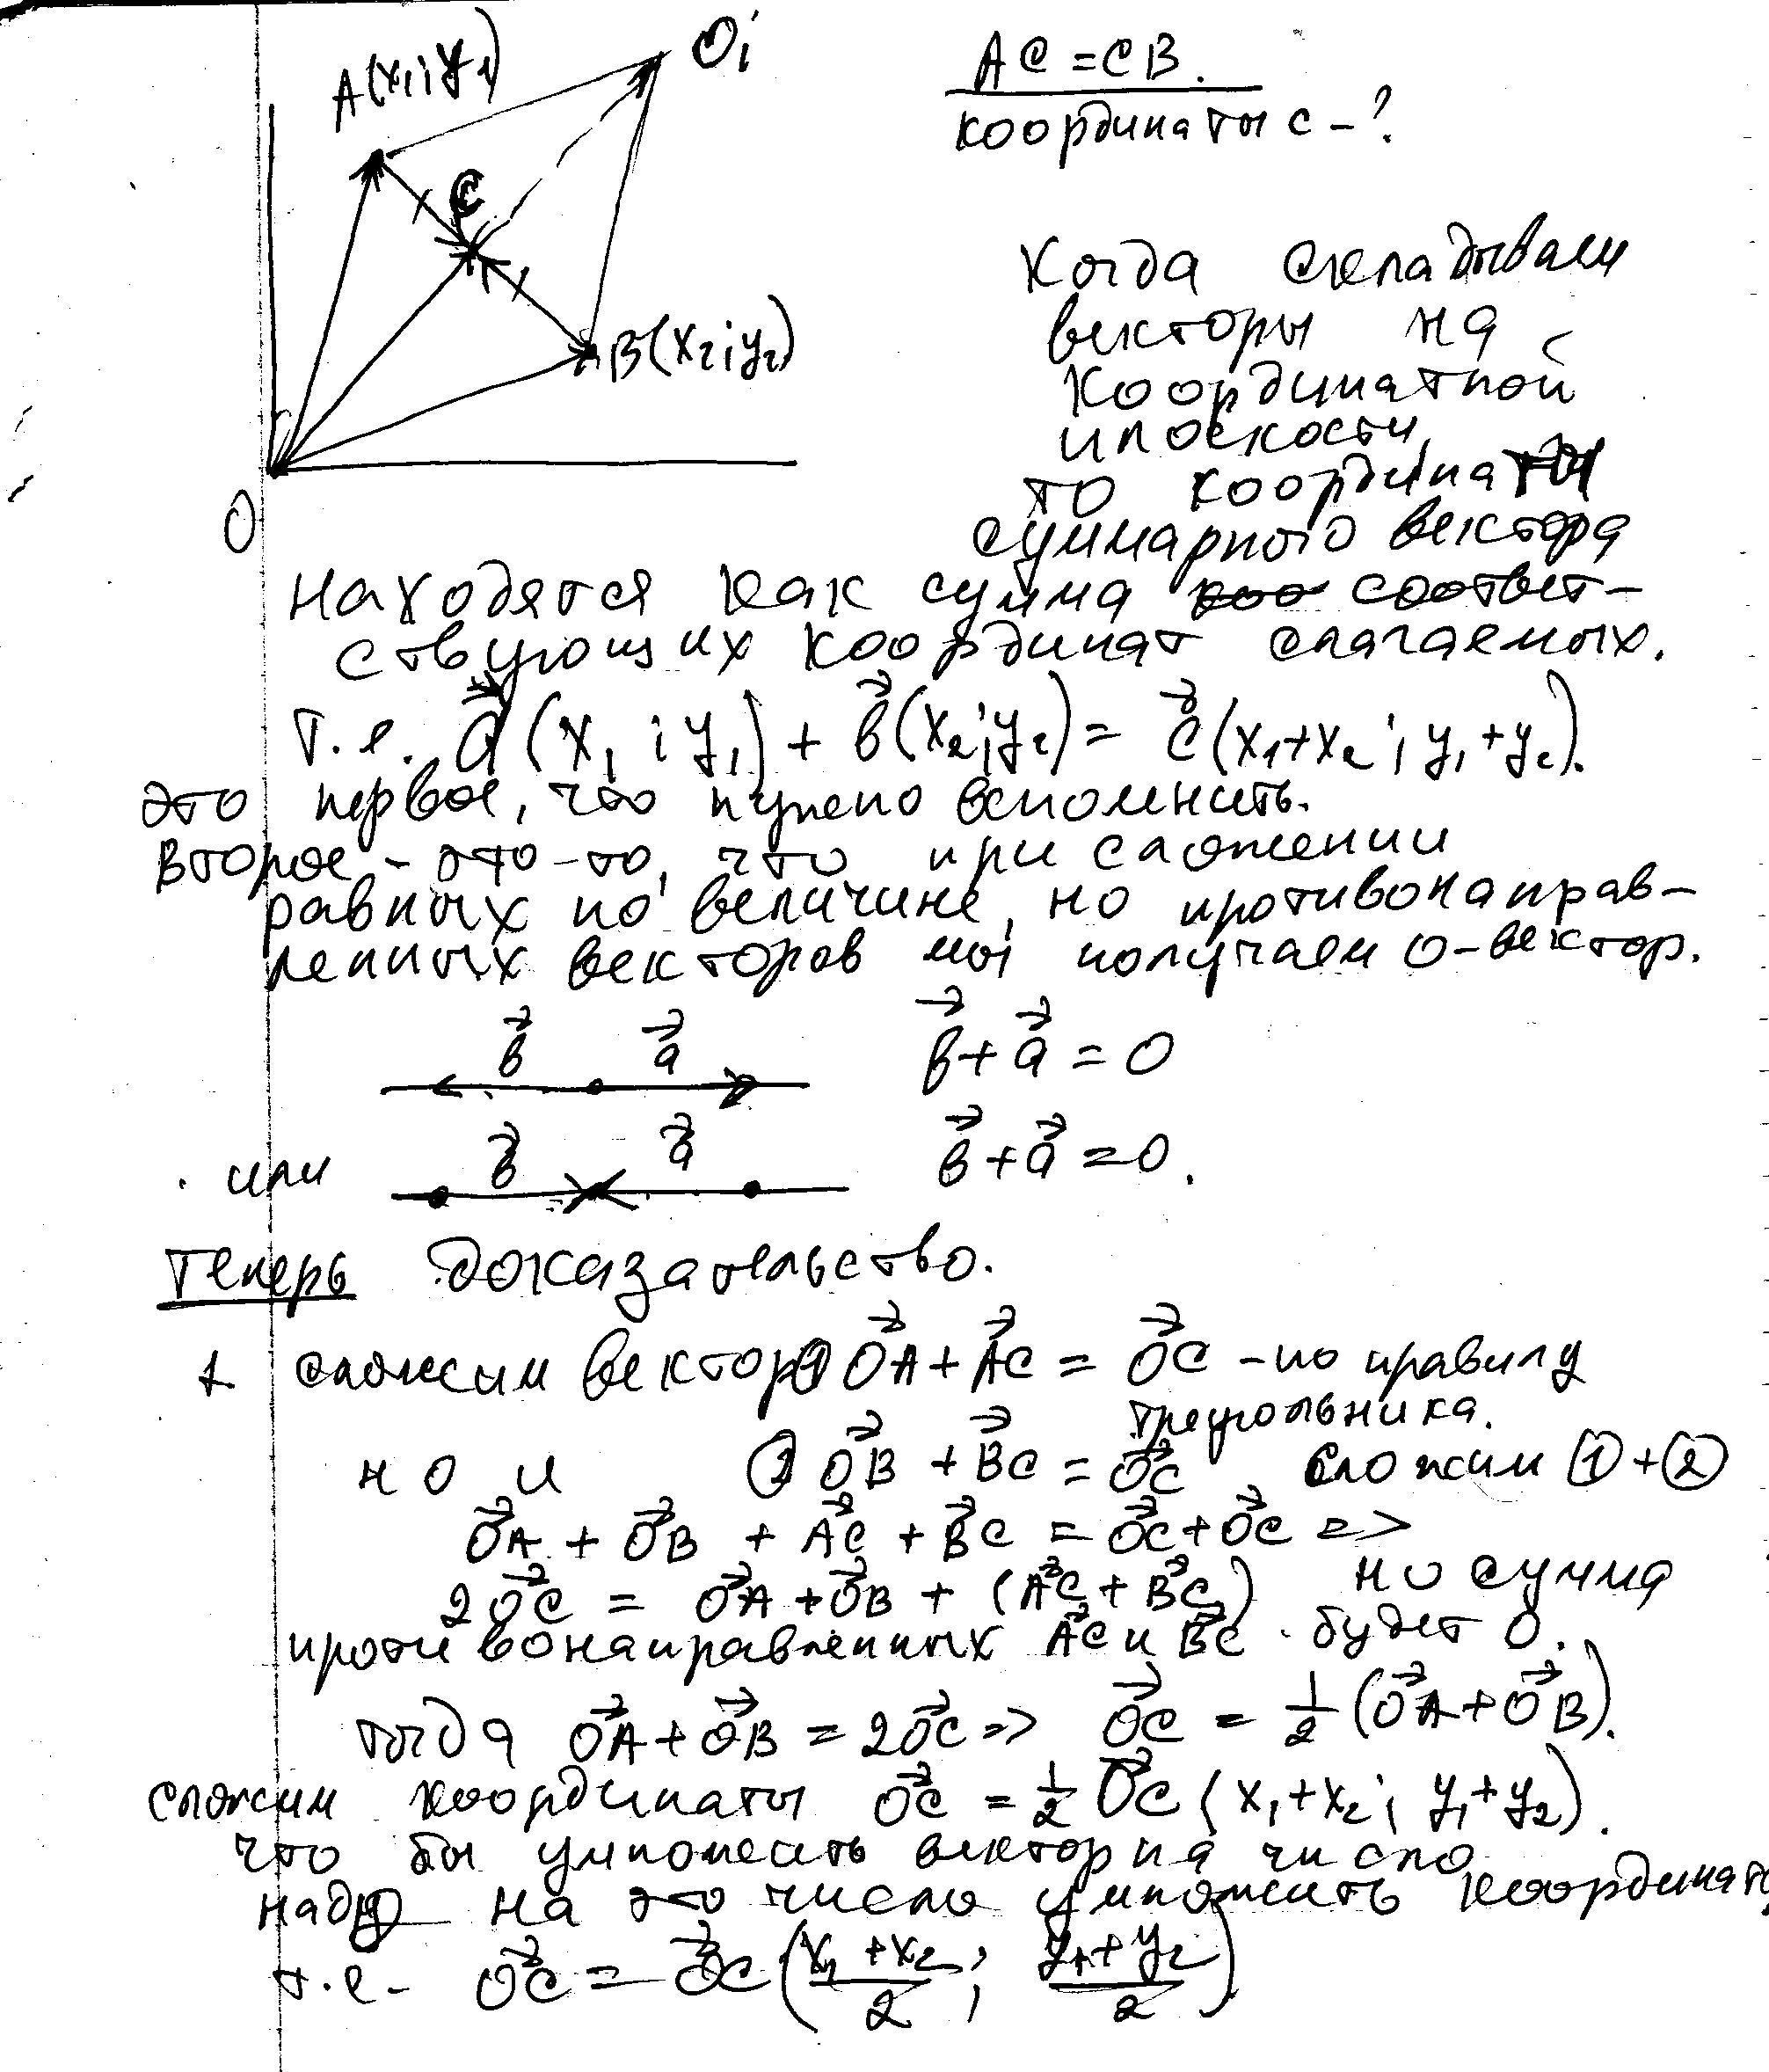 A(x₁; y₁)
O₁
C
B(x₂; y₂)
O
AC = CB.
координаты C - ?
Когда складываем
векторы на
координатной
плоскости,
то координаты
суммарного вектора
находятся как сумма соответ-
ствующих координат слагаемых.
т.е. a⃗ (x₁; y₁) + b⃗ (x₂; y₂) = c⃗ (x₁+x₂; y₁+y₂).
это первое, что нужно вспомнить.
второе - это-то, что при сложении
равных по величине, но противонаправ-
ленных векторов мы получаем 0-вектор.
b⃗ a⃗ b⃗ + a⃗ = 0
или b⃗ a⃗ b⃗ + a⃗ = 0.
Теперь доказательство.
1 сложим вектора OA⃗ + AC⃗ = OC⃗ - по правилу
треугольника.
но и ② OB⃗ + BC⃗ = OC⃗ Сложим ① + ②
OA⃗ + OB⃗ + AC⃗ + BC⃗ = OC⃗ + OC⃗ =>
2 OC⃗ = OA⃗ + OB⃗ + (AC⃗ + BC⃗) но сумма
противонаправленных AC⃗ и BC⃗ будет 0.
тогда OA⃗ + OB⃗ = 2OC⃗ => OC⃗ = 1/2 (OA⃗ + OB⃗).
сложим координаты OC⃗ = 1/2 OC⃗ (x₁+x₂; y₁+y₂).
что бы умножить вектор на число
надо на это число умножить координаты
т.е. OC⃗ = OC⃗ ((x₁+x₂)/2; (y₁+y₂)/2)